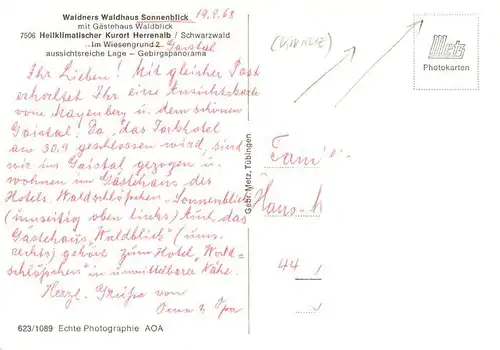 Waldners Waldhaus Sonnenblick 19.9.68
mit Gästehaus Waldblick
7506 Heilklimatischer Kurort Herrenalb / Schwarzwald
Im Wiesengrund 2 Gaistal
aussichtsreiche Lage — Gebirgspanorama
Ihr Lieben! Mit gleicher Post
erhaltet Ihr eine Ansichtskarte
vom Mayenberg u. dem schönen
Gaistal! Da, das Parkhotel
am 30.9 geschlossen wird, sind
wir ins Gaistal gezogen u.
wohnen im Gästehaus des
Hotels Waldschlößchen-Sonnenblick
(umseitig oben links) Auch das
Gästehaus "Waldblick" (ums.
rechts) gehört zum Hotel "Wald=
schlößchen" in unmittelbarer Nähe.
Herzl. Grüße von
Oma u. Opa
623/1089 Echte Photographie AOA
Gebr. Metz, Tübingen
Metz
Photokarten
Fami
Haus-h
44